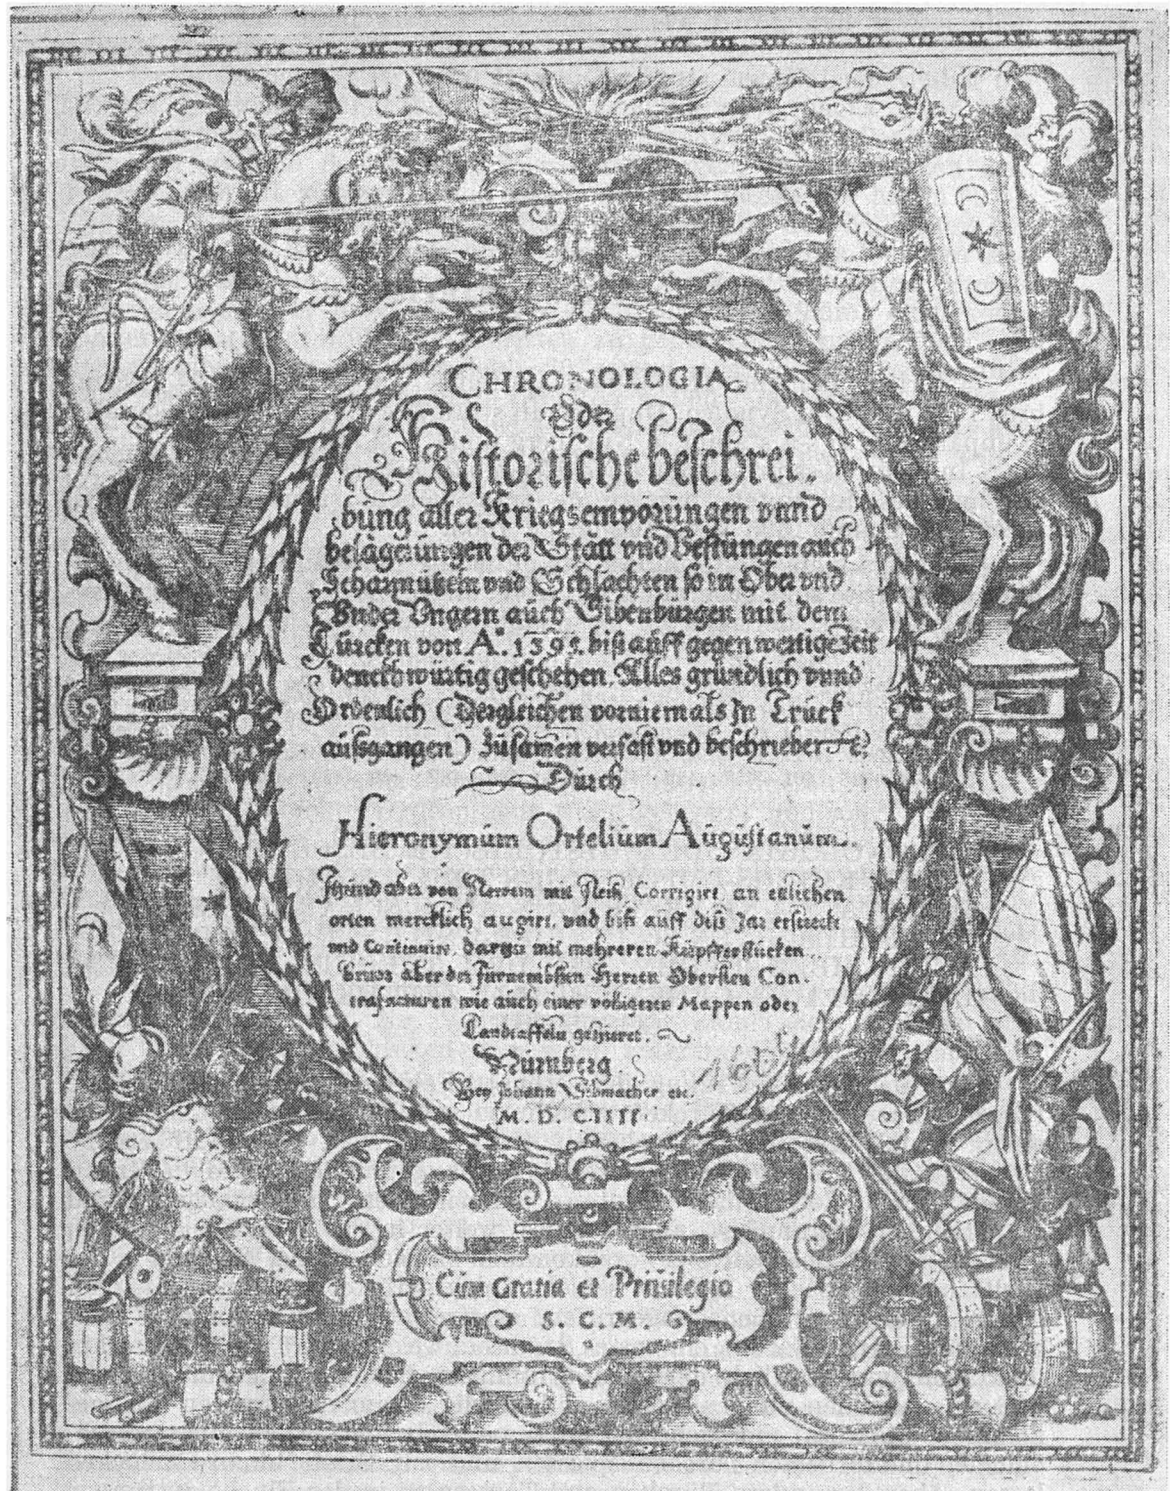 CHRONOLOGIA
Oder
Historische beschrei-
bung aller Kriegsempörüngen vnnd
belägerüngen der Stätt vnd Vestüngen auch
Scharmützeln vnd Schlachten so in Ober vnd
Vnder Vngern aüch Sibenbürgen mit dem
Türcken von A.º 1395. biß aüff gegenwertige Zeit
denckhwürtig geschehen. Alles gründlich vnnd
Ordenlich (dergleichen vorniemals Jn Trück
aüßgangen) züsamen verfast vnd beschrieben etc
Dürch
Hieronymüm Orteliüm Aügüstanüm.
Jtzund aber von Newem mit fleiß Corrigirt an etlichen
orten mercklich augirt, vnd biß aüff diß Jar erstreckt
vnd Continuirt, dargu mit mehreren Küpfferstücken
aber der Fürnembsten Herren Obersten Con-
trafacturen wie auch einer völligeren Mappen oder
Landtaffeln gezieret.
Nürnberg.
Bey Johann Sibmacher etc.
M. D. CIIII.
Cüm Gratia et Priüilegio
S. C. M.